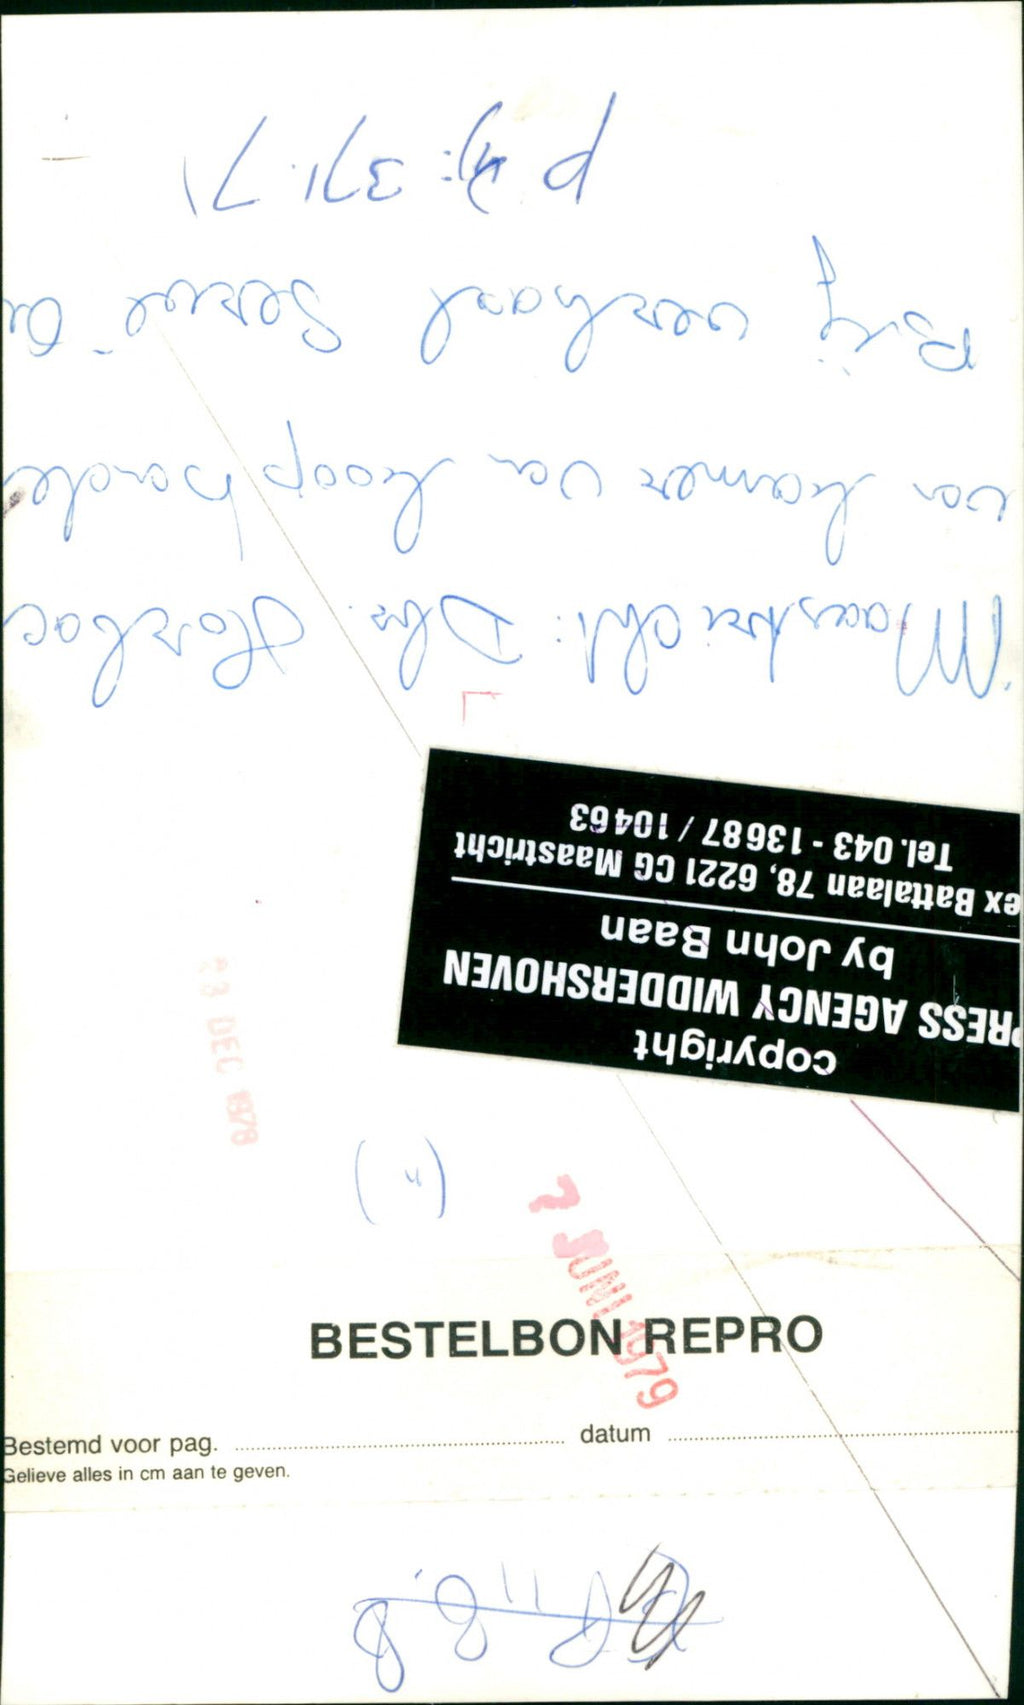 Maastricht: Dhr. Horbac
van kamer van koophande
Bij verhaal Serue
p (4): 371.71
copyright
PRESS AGENCY WIDDERSHOVEN
by John Baan
ex Battalaan 78, 6221 CG Maastricht
Tel. 043 - 13687 / 10463
23 DEC 1978
(4)
7 JUNI 1979
BESTELBON REPRO
Bestemd voor pag. datum
Gelieve alles in cm aan te geven.